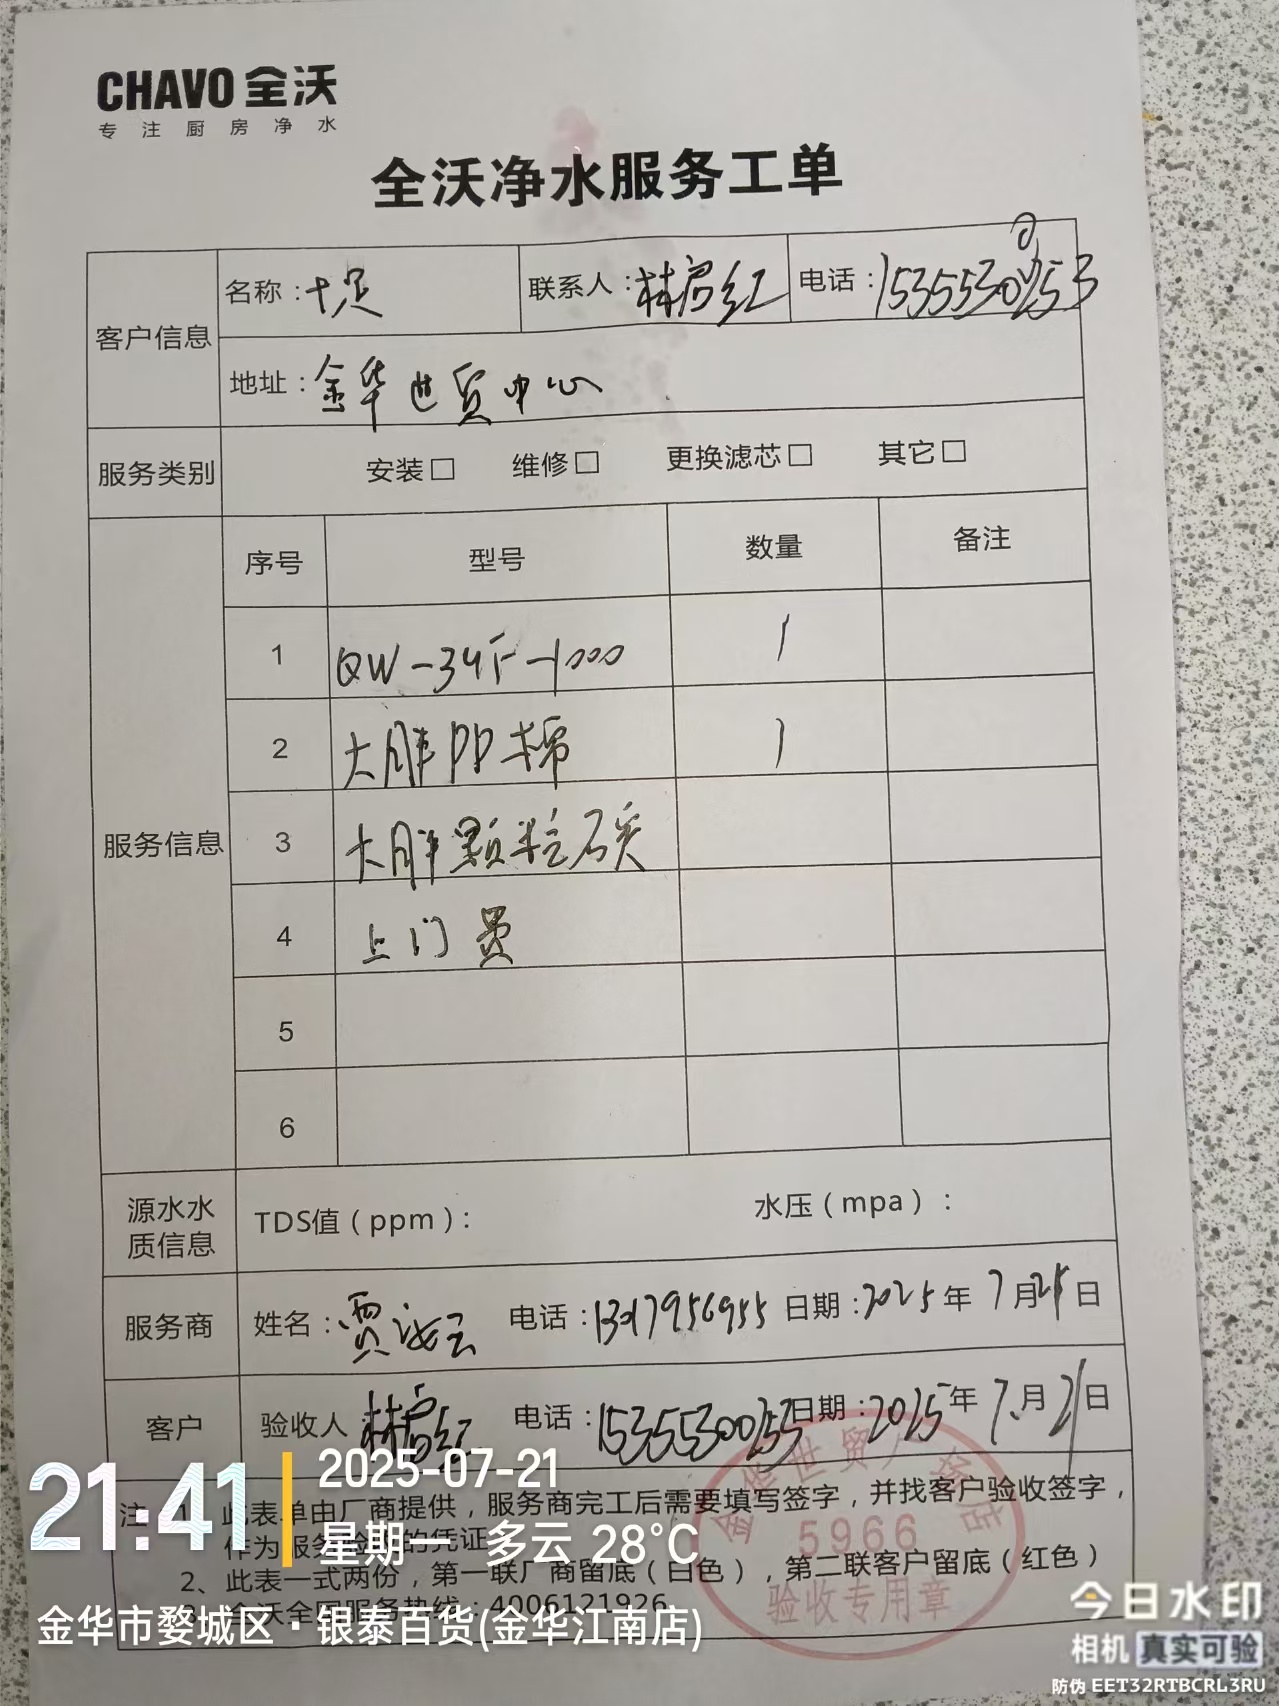 CHAVO 全沃
专注厨房净水
全沃净水服务工单
客户信息
名称：十足 联系人：林启红 电话：15355300253
地址：金华世贸中心
服务类别 安装□ 维修□ 更换滤芯□ 其它□
服务信息
序号 型号 数量 备注
1 QW-34F-1000 1
2 大胖PP棉 1
3 大胖颗粒碳
4 上门费
5
6
源水水质信息 TDS值（ppm）： 水压（mpa）：
服务商 姓名：贾 电话：13017956955 日期：2025年7月21日
客户 验收人：林启红 电话：15355300253 日期：2025年7月21日
注：1、此表单由厂商提供，服务商完工后需要填写签字，并找客户验收签字，
作为服务验收的凭证
2、此表一式两份，第一联厂商留底（白色），第二联客户留底（红色）
3、全沃全国服务热线：4006121926
金华世贸广场店
5966
验收专用章
21:41
2025-07-21
星期一 多云 28°C
金华市婺城区·银泰百货(金华江南店)
今日水印
相机 真实可验
防伪 EET32RTBCRL3RU